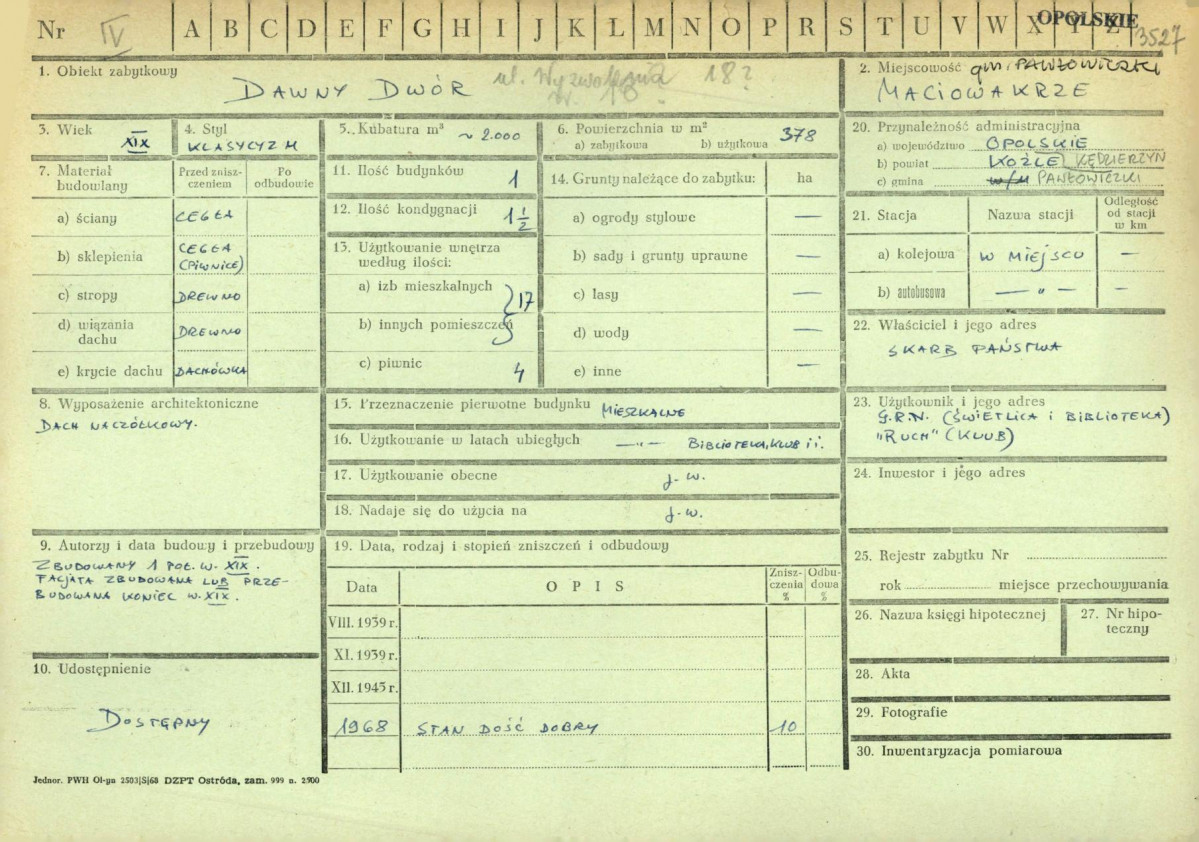 Nr IV A B C D E F G H I J K L M N O P R S T U V W X Y Z OPOLSKIE 3527
1. Obiekt zabytkowy
DAWNY DWÓR
ul. Wyzwolenia 18?
2. Miejscowość gm. PAWŁOWICZKI
MACIOWAKRZE
3. Wiek
XIX
4. Styl
KLASYCYZM
5. Kubatura m³ ~ 2.000
6. Powierzchnia w m²
a) zabytkowa b) użytkowa
378
20. Przynależność administracyjna
a) województwo OPOLSKIE
b) powiat KOŹLE KĘDZIERZYN
c) gmina w/m PAWŁOWICZKI
7. Materiał budowlany
Przed zniszczeniem
Po odbudowie
a) ściany CEGŁA
b) sklepienia CEGŁA (PIWNICE)
c) stropy DREWNO
d) wiązania dachu DREWNO
e) krycie dachu DACHÓWKA
11. Ilość budynków 1
12. Ilość kondygnacji 1 1/2
13. Użytkowanie wnętrza według ilości:
a) izb mieszkalnych
b) innych pomieszczeń
} 17
c) piwnic 4
14. Grunty należące do zabytku: ha
a) ogrody stylowe —
b) sady i grunty uprawne —
c) lasy —
d) wody —
e) inne —
21. Stacja
Nazwa stacji
Odległość od stacji w km
a) kolejowa W MIEJSCU —
b) autobusowa — " — —
22. Właściciel i jego adres
SKARB PAŃSTWA
8. Wyposażenie architektoniczne
DACH NACZÓŁKOWY.
15. Przeznaczenie pierwotne budynku MIESZKALNE
16. Użytkowanie w latach ubiegłych —"— BIBLIOTEKA, KLUB i i.
17. Użytkowanie obecne j. w.
18. Nadaje się do użycia na j. w.
23. Użytkownik i jego adres
G.R.N. (ŚWIETLICA i BIBLIOTEKA)
"RUCH" (KLUB)
24. Inwestor i jego adres
9. Autorzy i data budowy i przebudowy
ZBUDOWANY 1 POŁ. W. XIX.
FACJATA ZBUDOWANA LUB PRZE-
BUDOWANA KONIEC W. XIX.
19. Data, rodzaj i stopień zniszczeń i odbudowy
Data
O P I S
Zniszczenia %
Odbudowa %
VIII. 1939 r.
XI. 1939 r.
XII. 1945 r.
1968 STAN DOŚĆ DOBRY 10
25. Rejestr zabytku Nr
rok miejsce przechowywania
26. Nazwa księgi hipotecznej
27. Nr hipoteczny
10. Udostępnienie
DOSTĘPNY
28. Akta
29. Fotografie
30. Inwentaryzacja pomiarowa
Jednor. PWH Ol-yn 2503|S|68 DZPT Ostróda, zam. 999 n. 2500